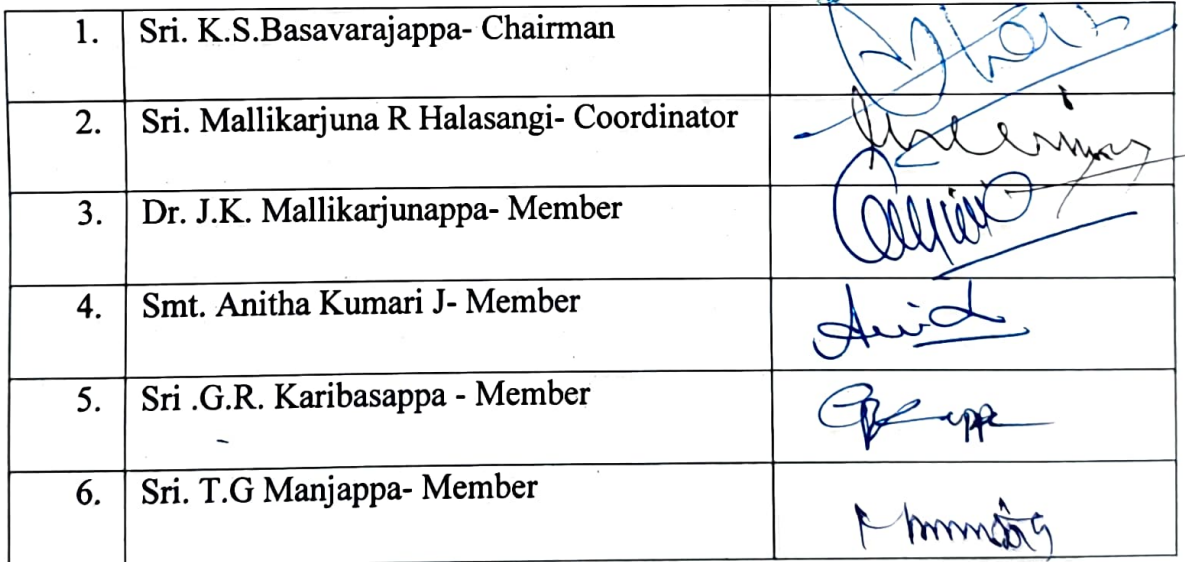 1. Sri. K.S.Basavarajappa- Chairman
2. Sri. Mallikarjuna R Halasangi- Coordinator
3. Dr. J.K. Mallikarjunappa- Member
4. Smt. Anitha Kumari J- Member
5. Sri .G.R. Karibasappa - Member
6. Sri. T.G Manjappa- Member